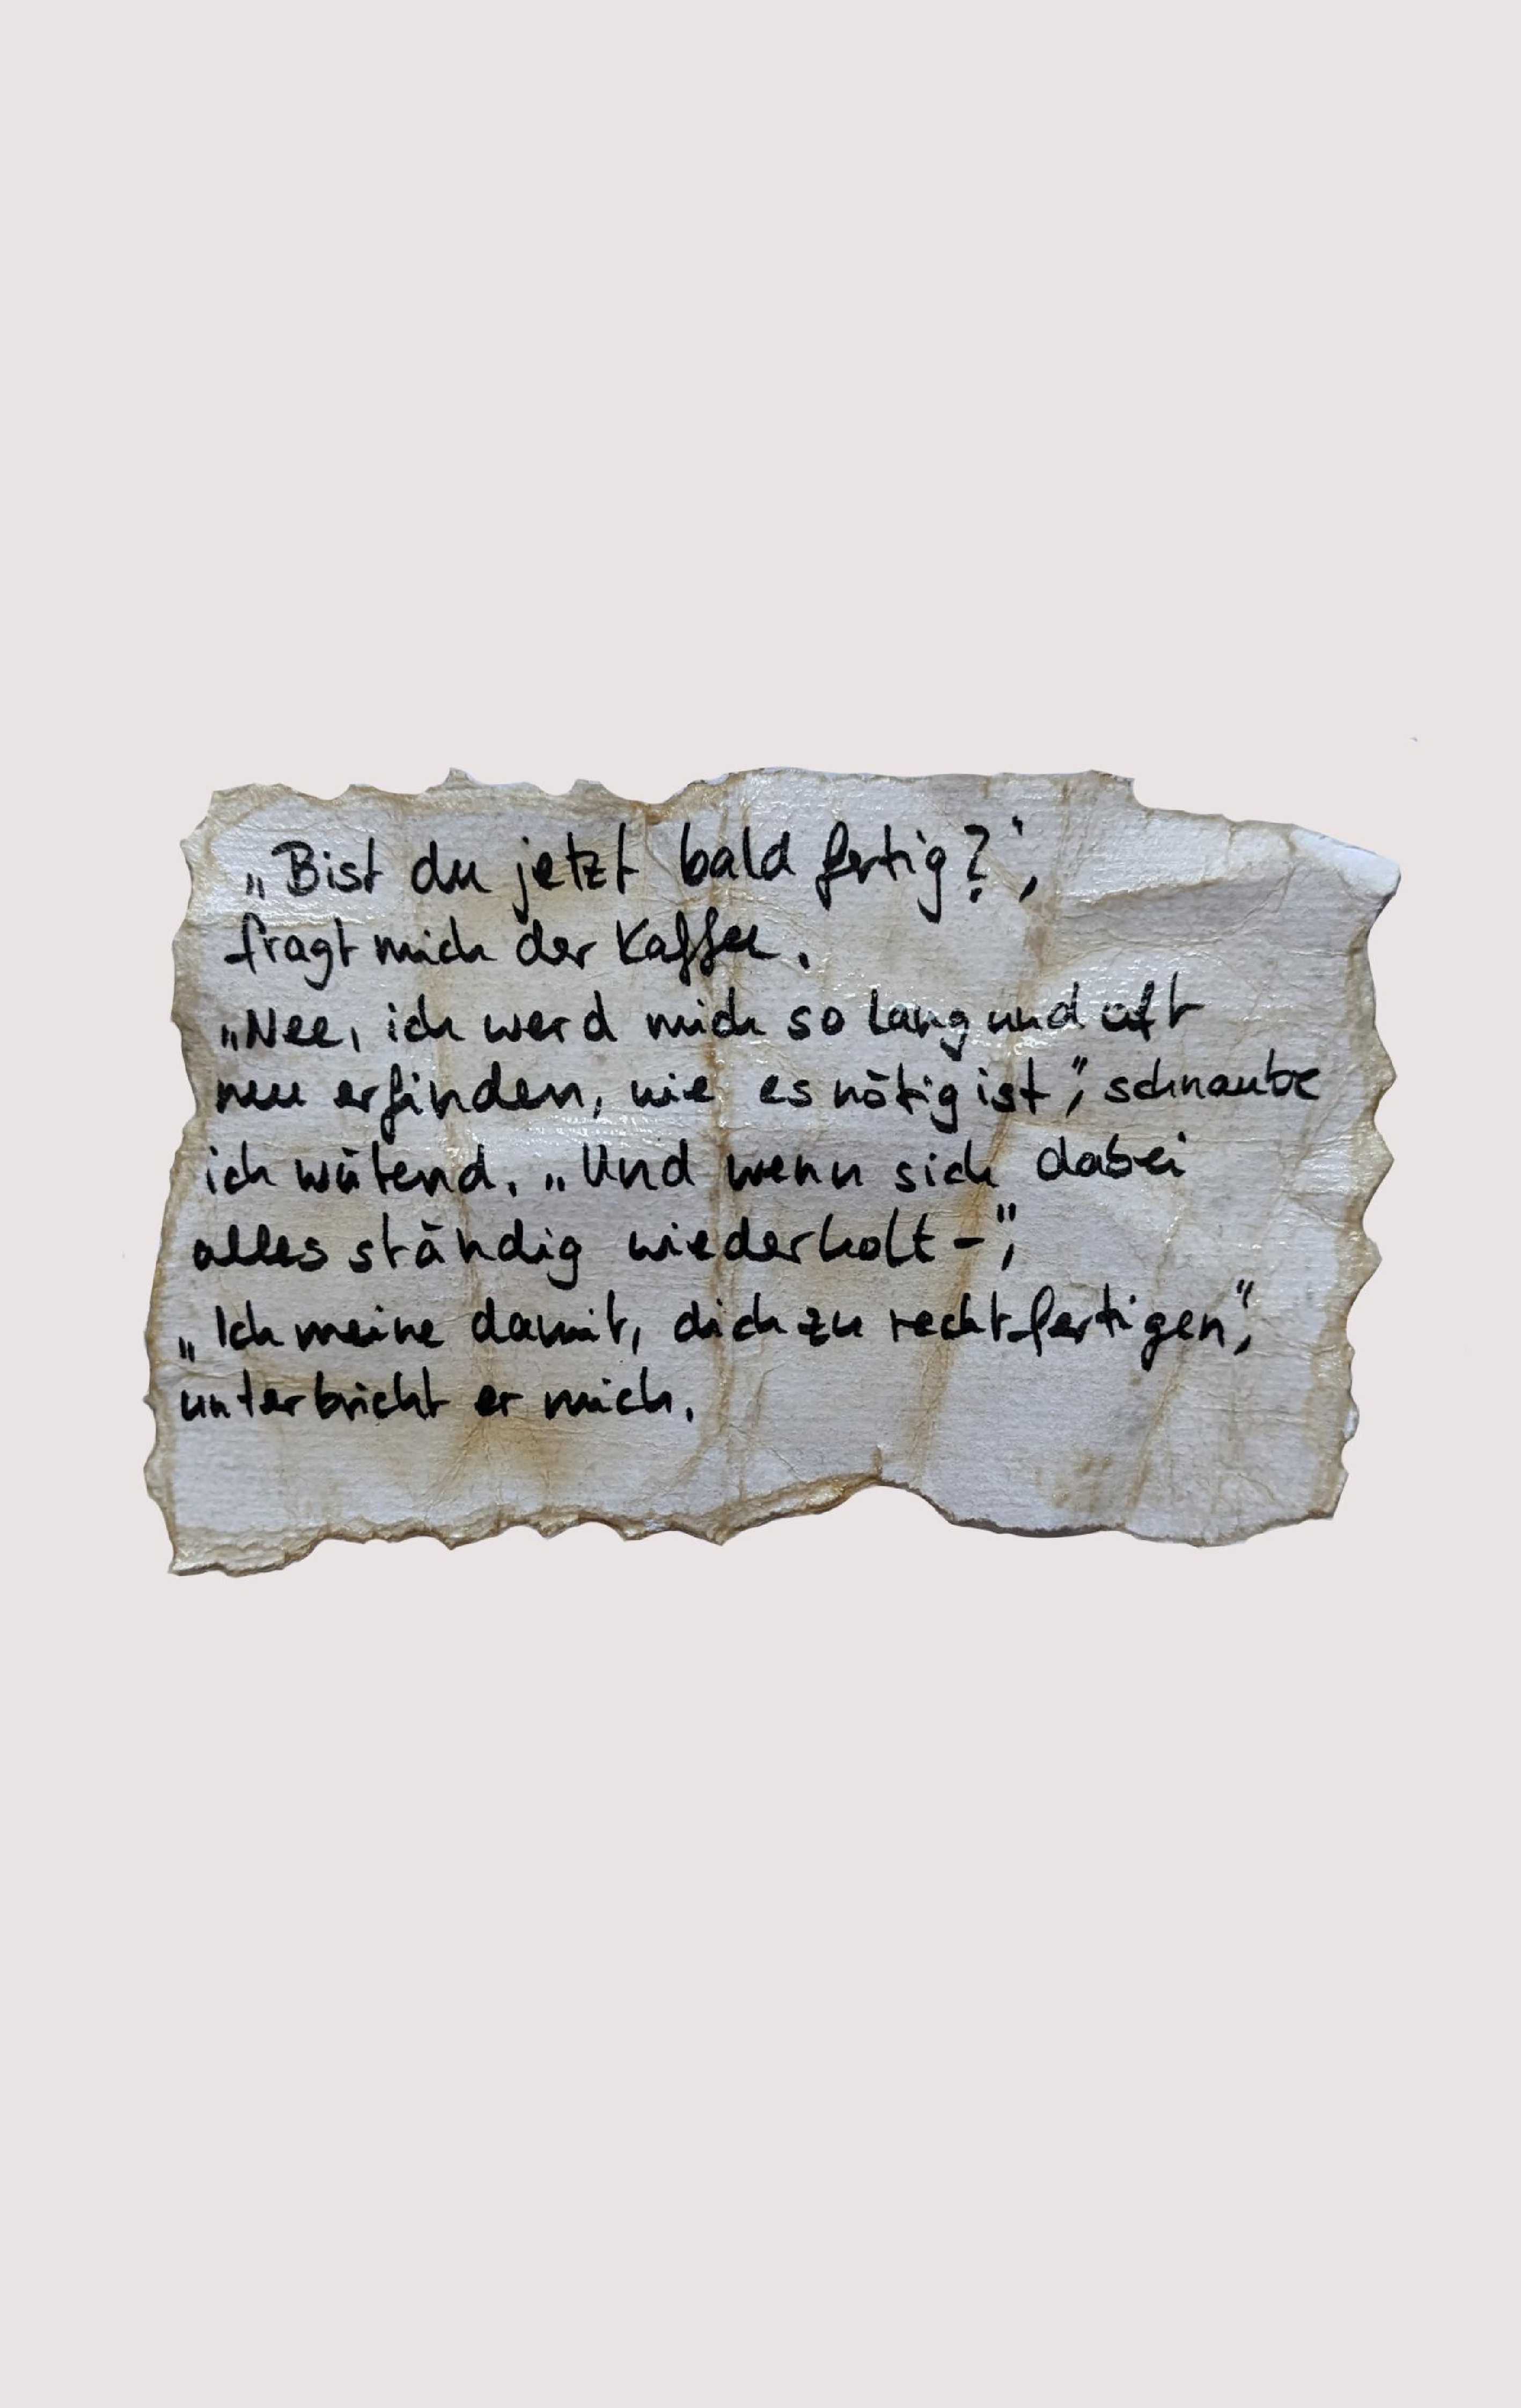 „Bist du jetzt bald fertig?",
fragt mich der Kaffee.
„Nee, ich werd mich so lang und oft
neu erfinden, wie es nötig ist", schnaube
ich wütend. „Und wenn sich dabei
alles ständig wiederholt –",
„Ich meine damit, dich zu rechtfertigen",
unterbricht er mich.